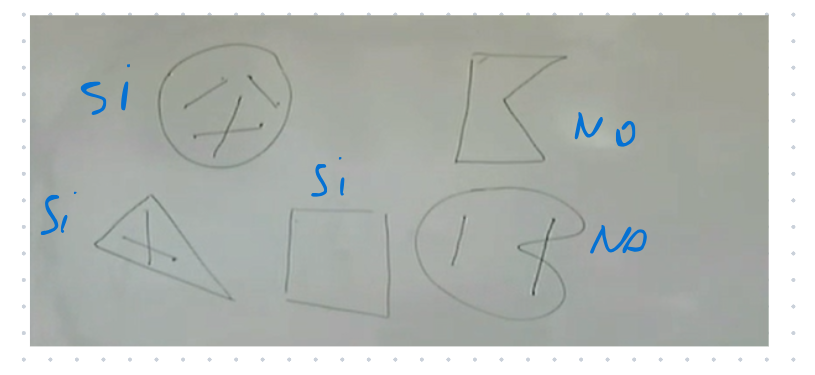 Si
NO
Si
Si
NO